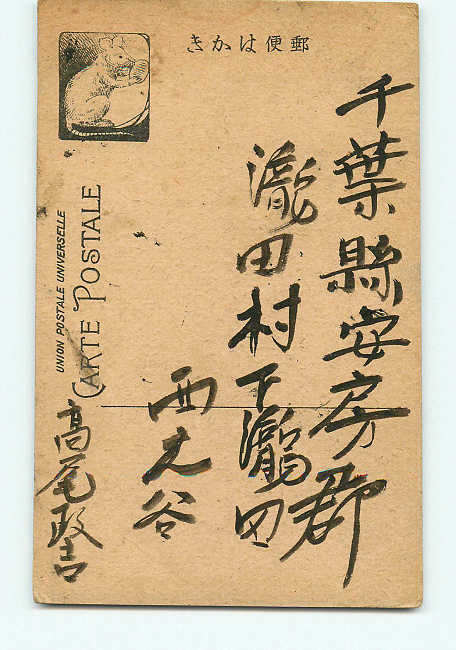 郵便はかき
千葉縣安房郡
瀧田村下瀧田
西大谷
高尾
UNION POSTALE UNIVERSELLE
CARTE POSTALE